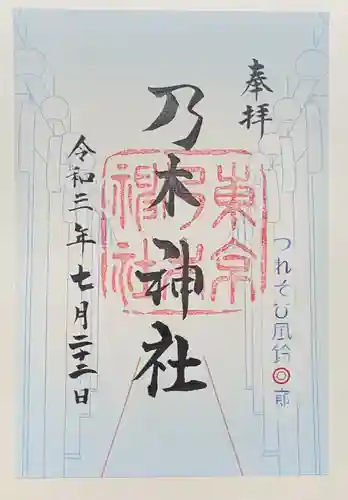 奉拝
乃木神社
東京乃木神社
令和三年七月二十二日
つれそひ風鈴回廊